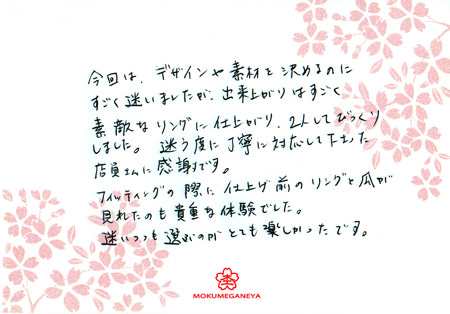 今回は、デザインや素材を決めるのに
すごく迷いましたが、出来上がりはすごく
素敵なリングに仕上がり、2人してびっくり
しました。迷う度に丁寧に対応して下さった
店員さんに感謝です。
フィッティングの際に仕上げ前のリングと瓜が
見れたのも貴重な体験でした。
迷いつつも選ぶのがとても楽しかったです。
MOKUMEGANEYA